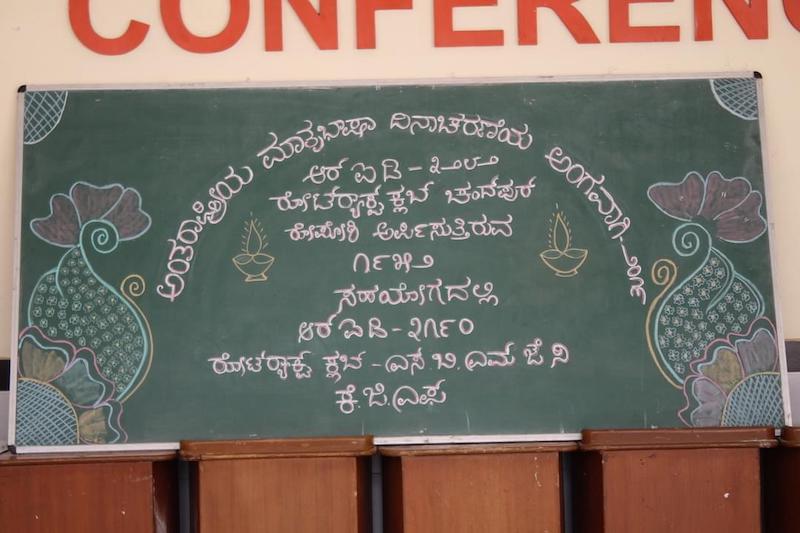 CONFEREN
ಅಂತರಾಷ್ಟ್ರೀಯ ಮಾತೃಭಾಷಾ ದಿನಾಚರಣೆಯ ಅಂಗವಾಗಿ
ಆರ್ ಐ ಡಿ - ೩೨೪೨
ರೋಟರ್‍ಯಾಕ್ಟ್ ಕ್ಲಬ್ ಚಂದಪುರ
ಅರ್ಪಿಸುತ್ತಿರುವ
೧೯೫೨
ಸಹಯೋಗದಲ್ಲಿ
ಆರ್ ಐ ಡಿ - ೩೧೯೦
ರೋಟರ್‍ಯಾಕ್ಟ್ ಕ್ಲಬ್ - ಎಸ್.ಬಿ.ಎಮ್ ಜೆ ಸಿ
ಕೆ.ಜಿ.ಎಫ್